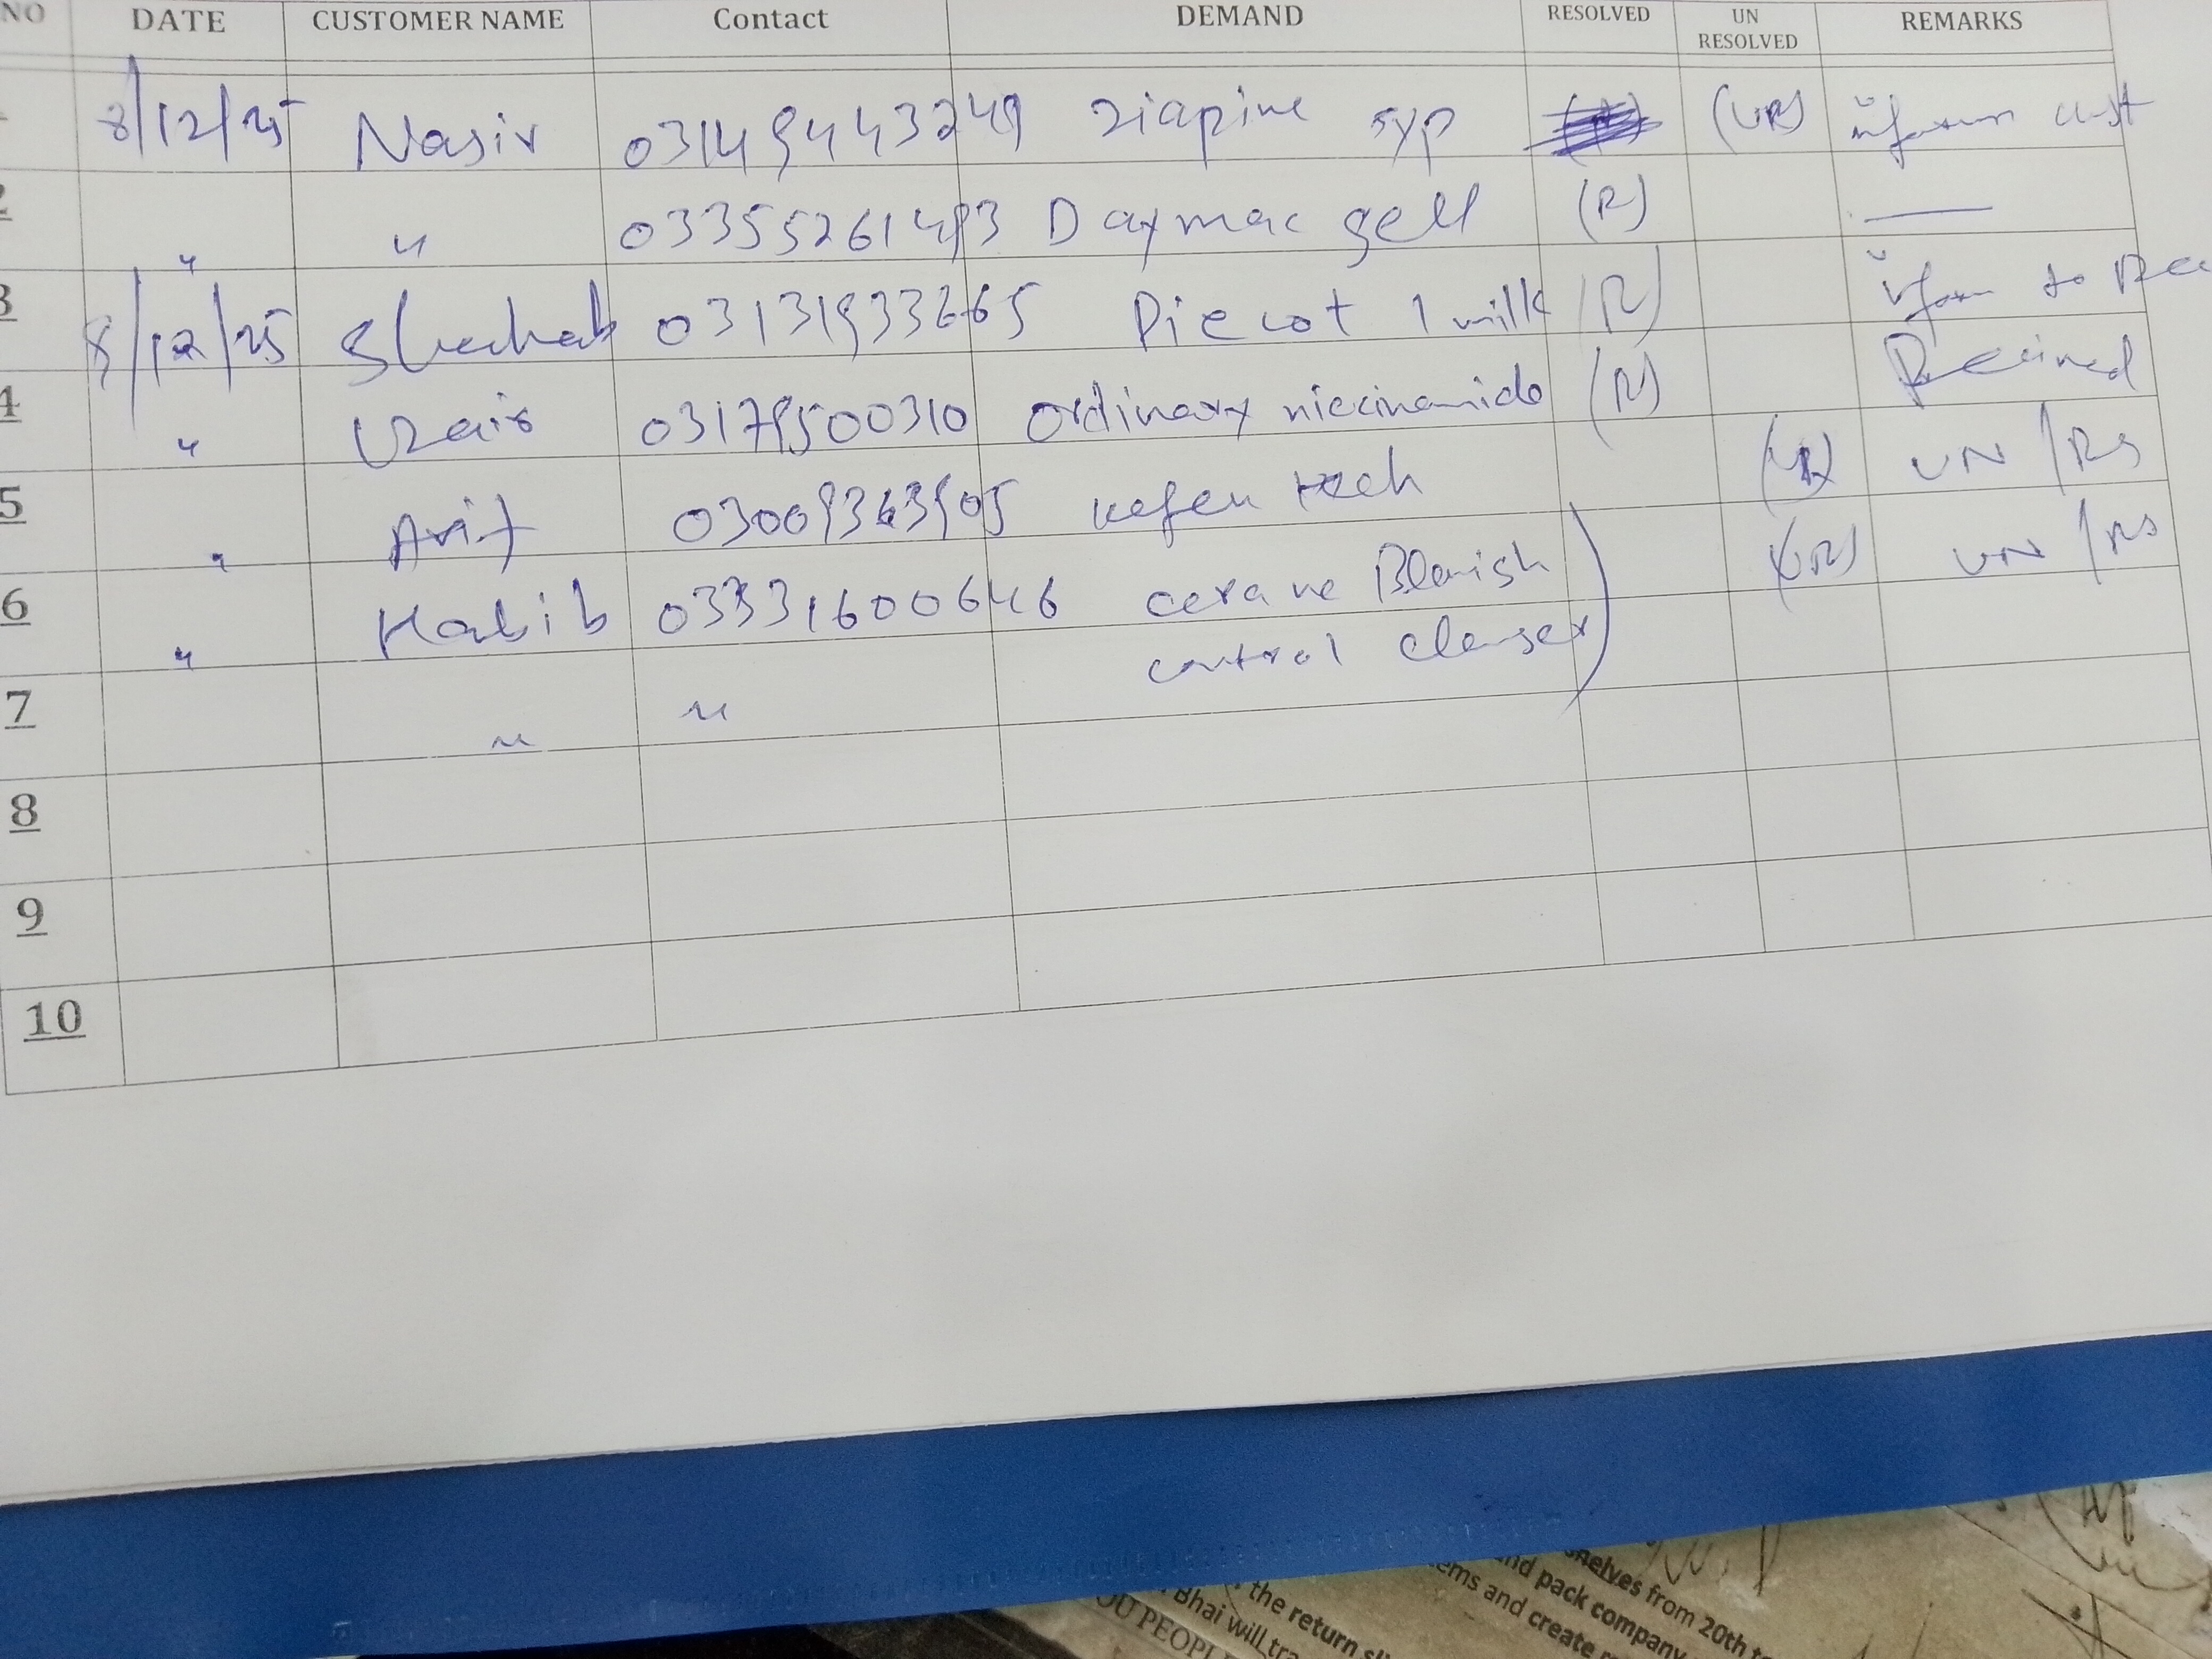 NO DATE CUSTOMER NAME Contact DEMAND RESOLVED UN RESOLVED REMARKS
8/12/25 Nasir 03149443249 ziapine syp (UR) inform cust
2 " " 03355261493 Daymac gell (R) —
3 8/12/25 03131933665 Piecot 1 milk (R) inform to
4 " Uzair 03179500310 Ordinary niccinamide (R) Recived
5 " Arif 03009363905 kefen tech (UR) UN/Rs
6 " Habib 03331600646 cera ve Blemish (UR) UN/Rs
control clenser
7 " "
8
9
10
shelves from 20th t
nd pack company
ems and create
the return sl
Bhai will tra
OU PEOPL